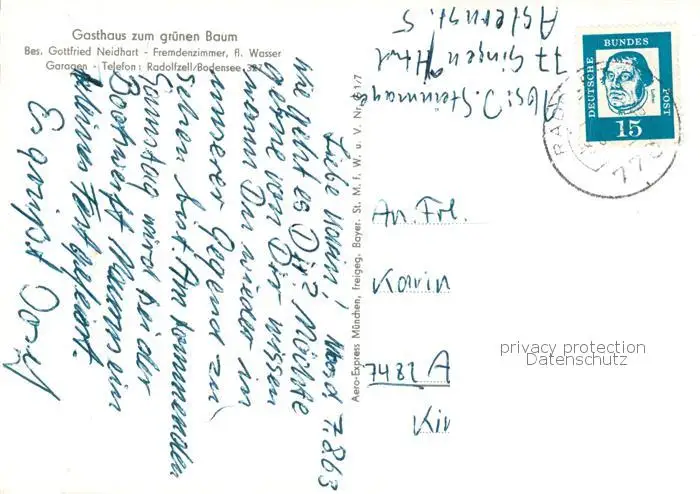 Gasthaus zum grünen Baum
Bes. Gottfried Neidhart - Fremdenzimmer, fl. Wasser
Garagen - Telefon: Radolfzell/Bodensee 327
7.8.63
Liebe Karin!
wie geht es Dir? Möchte
gerne von Dir wissen
wann Du wieder in
unserer Gegend zu
sehen bist. Am kommenden
Samstag wird bei der
Bootswerft Naumm ein
kleines Fest gefeiert.
Es grüßt
Aero-Express München, freigeg. Bayer. St. M. f. W. u. V. Nr.
Abs: J. Steinmann
77 Singen/Htwl
Asternstr. 5
DEUTSCHE BUNDES POST
Luther
15
An Frl.
Karin
7482 A
Kir
privacy protection
Datenschutz